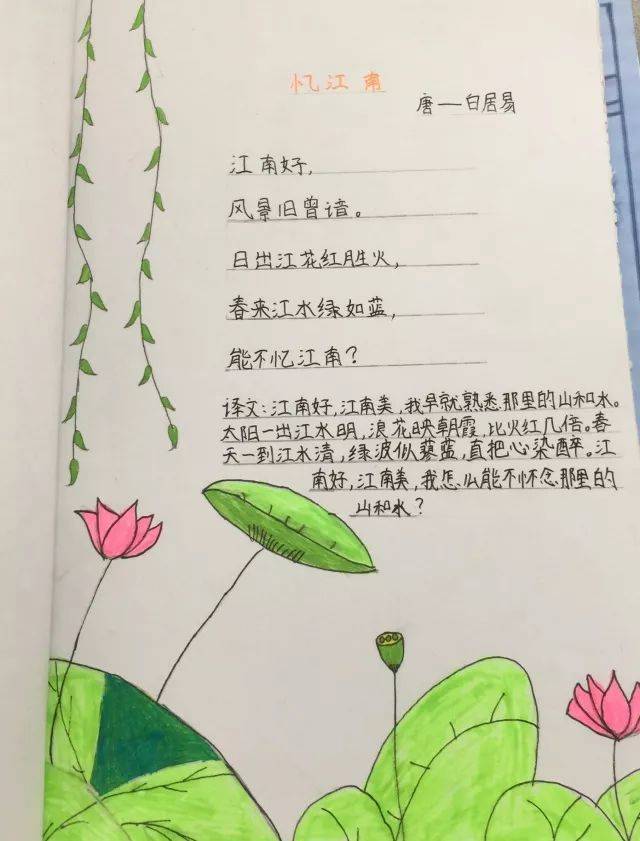 忆江南
唐一白居易
江南好，
风景旧曾谙。
日出江花红胜火，
春来江水绿如蓝，
能不忆江南？
译文：江南好，江南美，我早就熟悉那里的山和水。
太阳一出江水明，浪花映朝霞，比火红几倍。春
天一到江水清，绿波似蓼蓝，直把心染醉。江
南好，江南美，我怎么能不怀念那里的
山和水？